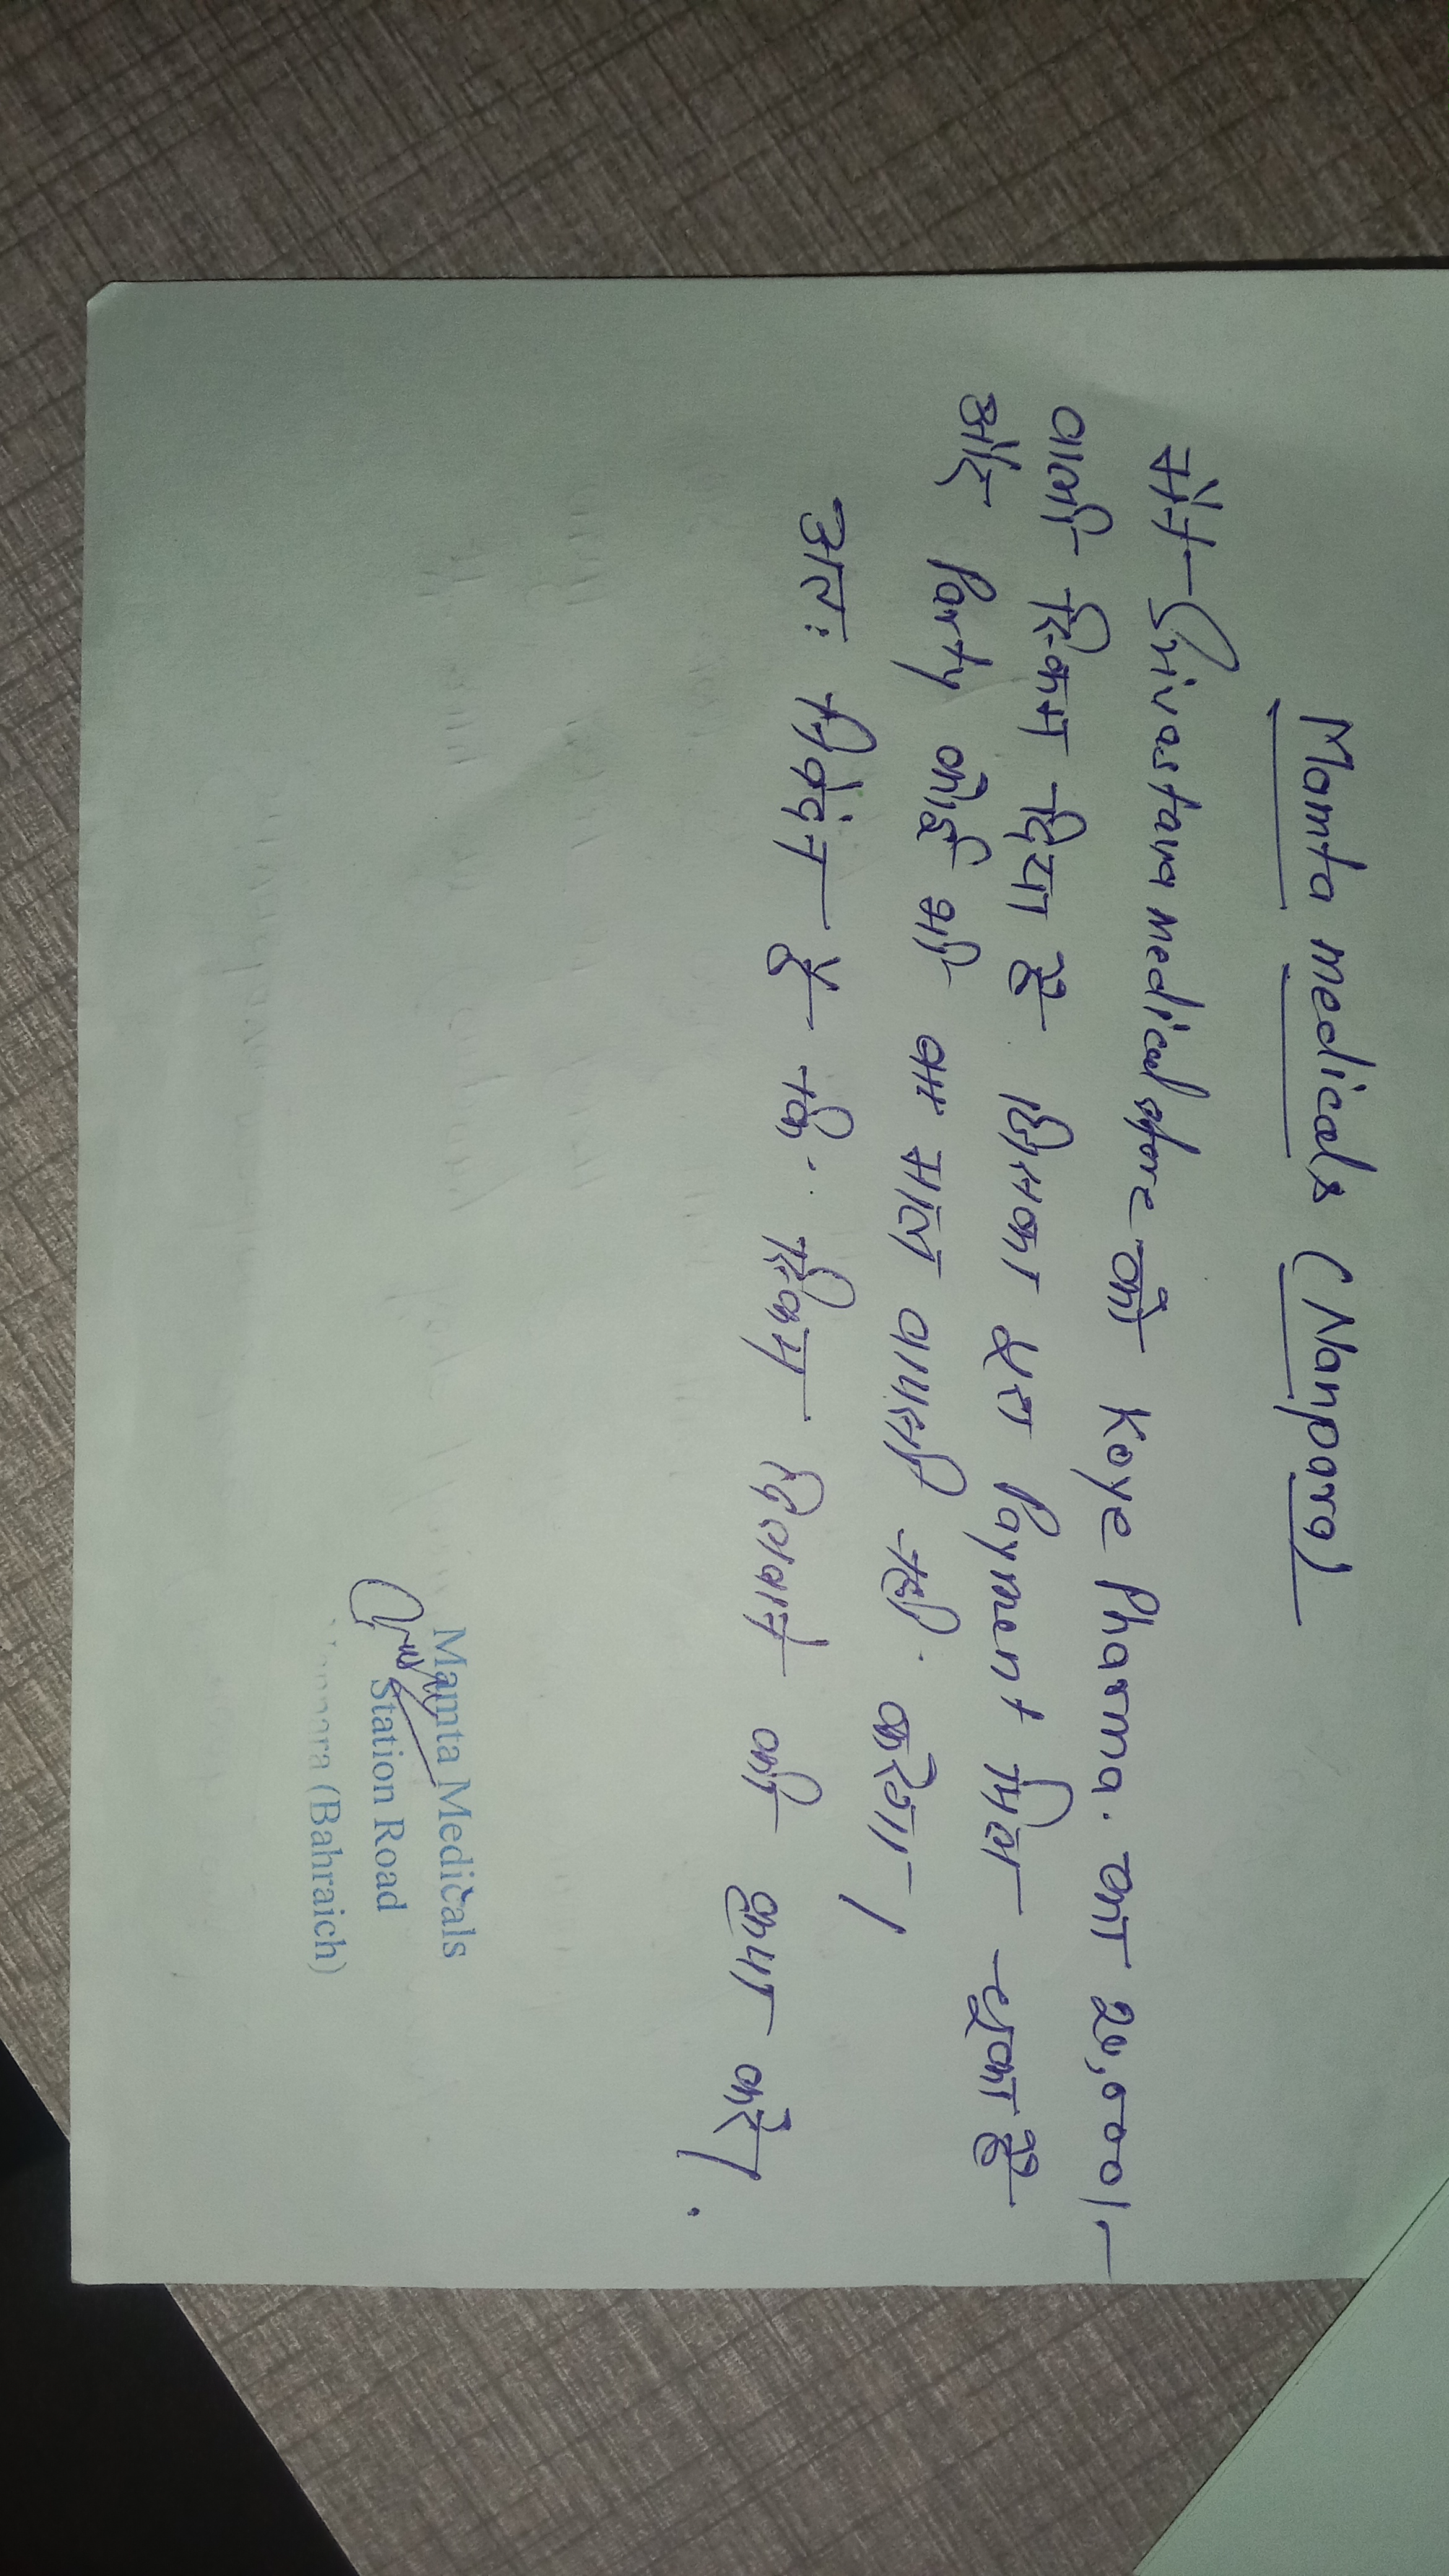 Mamta medicals (Nanpara)
मैंने Srivastava medical store को Koye Pharma. का 20,000/-
वाली स्किम दिया है जिसका शत Payment मिल चुका है
और Party कोई भी का माल वापसी नहीं करेगा।
अतः निवेदन है कि स्किम दिलवाने की कृपा करें।
Mamta Medicals
Station Road
(Bahraich)